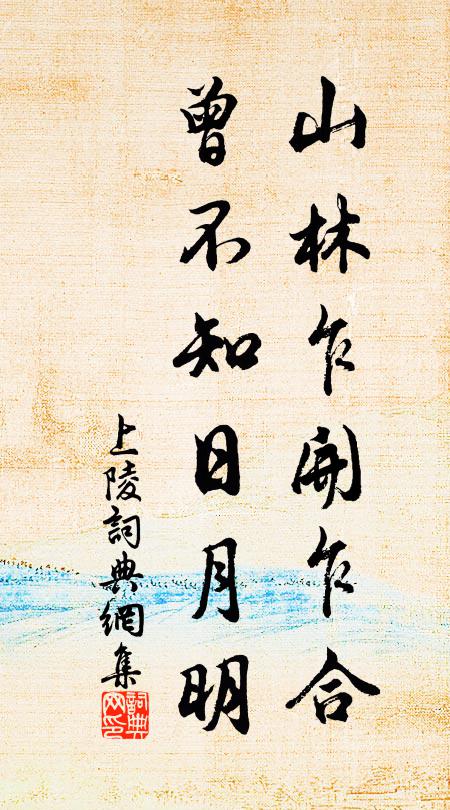 山林乍開乍合
曾不知日月明
上陵詞典網集
詞典網印